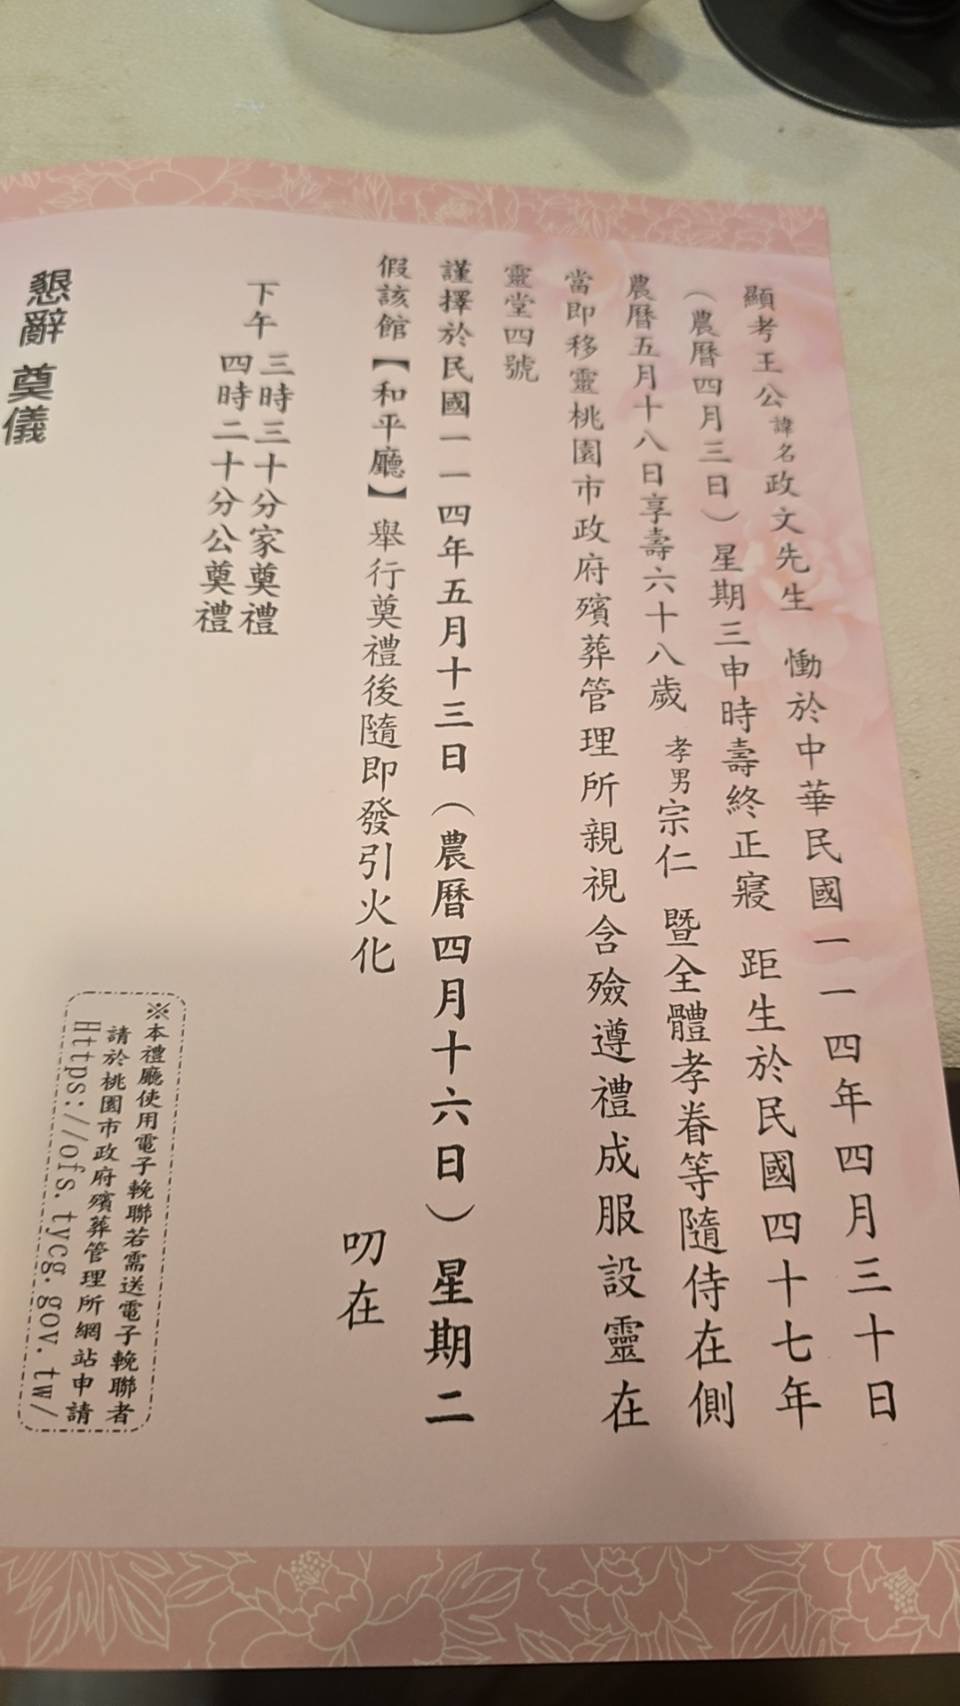 顯考王公諱名政文先生 慟於中華民國一一四年四月三十日
（農曆四月三日）星期三申時壽終正寢 距生於民國四十七年
農曆五月十八日享壽六十八歲 孝男宗仁 暨全體孝眷等隨侍在側
當即移靈桃園市政府殯葬管理所親視含殮遵禮成服設靈在
靈堂四號
謹擇於民國一一四年五月十三日（農曆四月十六日）星期二
假該館【和平廳】舉行奠禮後隨即發引火化 叨在
下午 三時三十分家奠禮
四時二十分公奠禮
懇辭 奠儀
※本禮廳使用電子輓聯若需送電子輓聯者
請於桃園市政府殯葬管理所網站申請
Https://ofs.tycg.gov.tw/